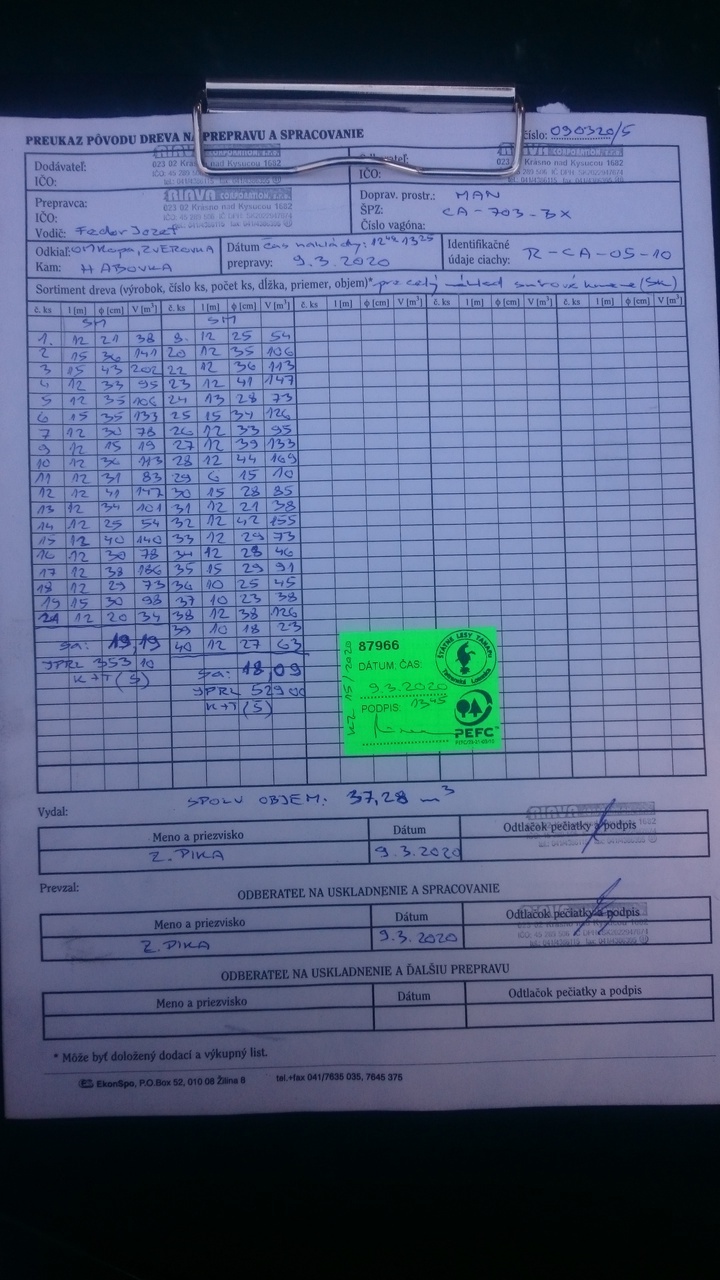 PREUKAZ PÔVODU DREVA NA PREPRAVU A SPRACOVANIE
číslo: 090320/5
Dodávateľ:
IČO:
023 02 Krásno nad Kysucou 1682
IČO:
023 02 Krásno nad Kysucou 1682
Prepravca:
IČO:
023 02 Krásno nad Kysucou 1682
Vodič: Fedor Jozef
Doprav. prostr.: MAN
ŠPZ: CA-703-BX
Číslo vagóna:
Odkiaľ: OM Kopa, ZVEROVKA
Kam: HABOVKA
Dátum čas nakládky:
prepravy: 9.3.2020
Identifikačné
údaje ciachy: R-CA-05-10
Sortiment dreva (výrobok, číslo ks, počet ks, dĺžka, priemer, objem)* pre celý náklad surové kmene (SK)
č. ks l [m] ϕ [cm] V [m³] č. ks l [m] ϕ [cm] V [m³] č. ks l [m] ϕ [cm] V [m³] č. ks l [m] ϕ [cm] V [m³] č. ks l [m] ϕ [cm] V [m³]
SM SM
1. 12 21 38 8. 12 25 54
2 15 36 141 20 12 35 106
3 15 43 202 22 12 36 113
4 12 33 95 23 12 41 147
5 12 35 106 24 13 28 73
6 15 35 133 25 15 34 126
7 12 30 78 26 12 33 95
9 12 15 19 27 12 39 133
10 12 36 113 28 12 44 169
11 12 31 83 29 6 15 10
12 12 41 147 30 15 28 85
13 12 34 101 31 12 21 38
14 12 25 54 32 12 42 155
15 12 40 140 33 12 29 73
16 12 30 78 34 12 23 46
17 12 38 186 35 15 29 91
18 12 29 73 36 10 25 45
19 15 30 98 37 10 23 38
21 12 20 34 38 12 38 126
39 10 18 23
Sa: 19,19 40 12 27 63
JPRL 353 10
K+T (Š)
Sa: 18,09
JPRL 529 00
K+T (Š)
KZ 15/2020
87966
DÁTUM, ČAS:
9.3.2020
13 45
PODPIS:
ŠTÁTNE LESY TANAPU
Tatranská Lomnica
PEFC
SPOLU OBJEM: 37,28 m³
Vydal:
Meno a priezvisko Dátum Odtlačok pečiatky a podpis
Z. PIKA 9.3.2020
Prevzal:
ODBERATEĽ NA USKLADNENIE A SPRACOVANIE
Meno a priezvisko Dátum Odtlačok pečiatky a podpis
Z. PIKA 9.3.2020
ODBERATEĽ NA USKLADNENIE A ĎALŠIU PREPRAVU
Meno a priezvisko Dátum Odtlačok pečiatky a podpis
* Môže byť doložený dodací a výkupný list.
EkonSpo, P.O.Box 52, 010 08 Žilina 8 tel.+fax 041/7635 035, 7645 375